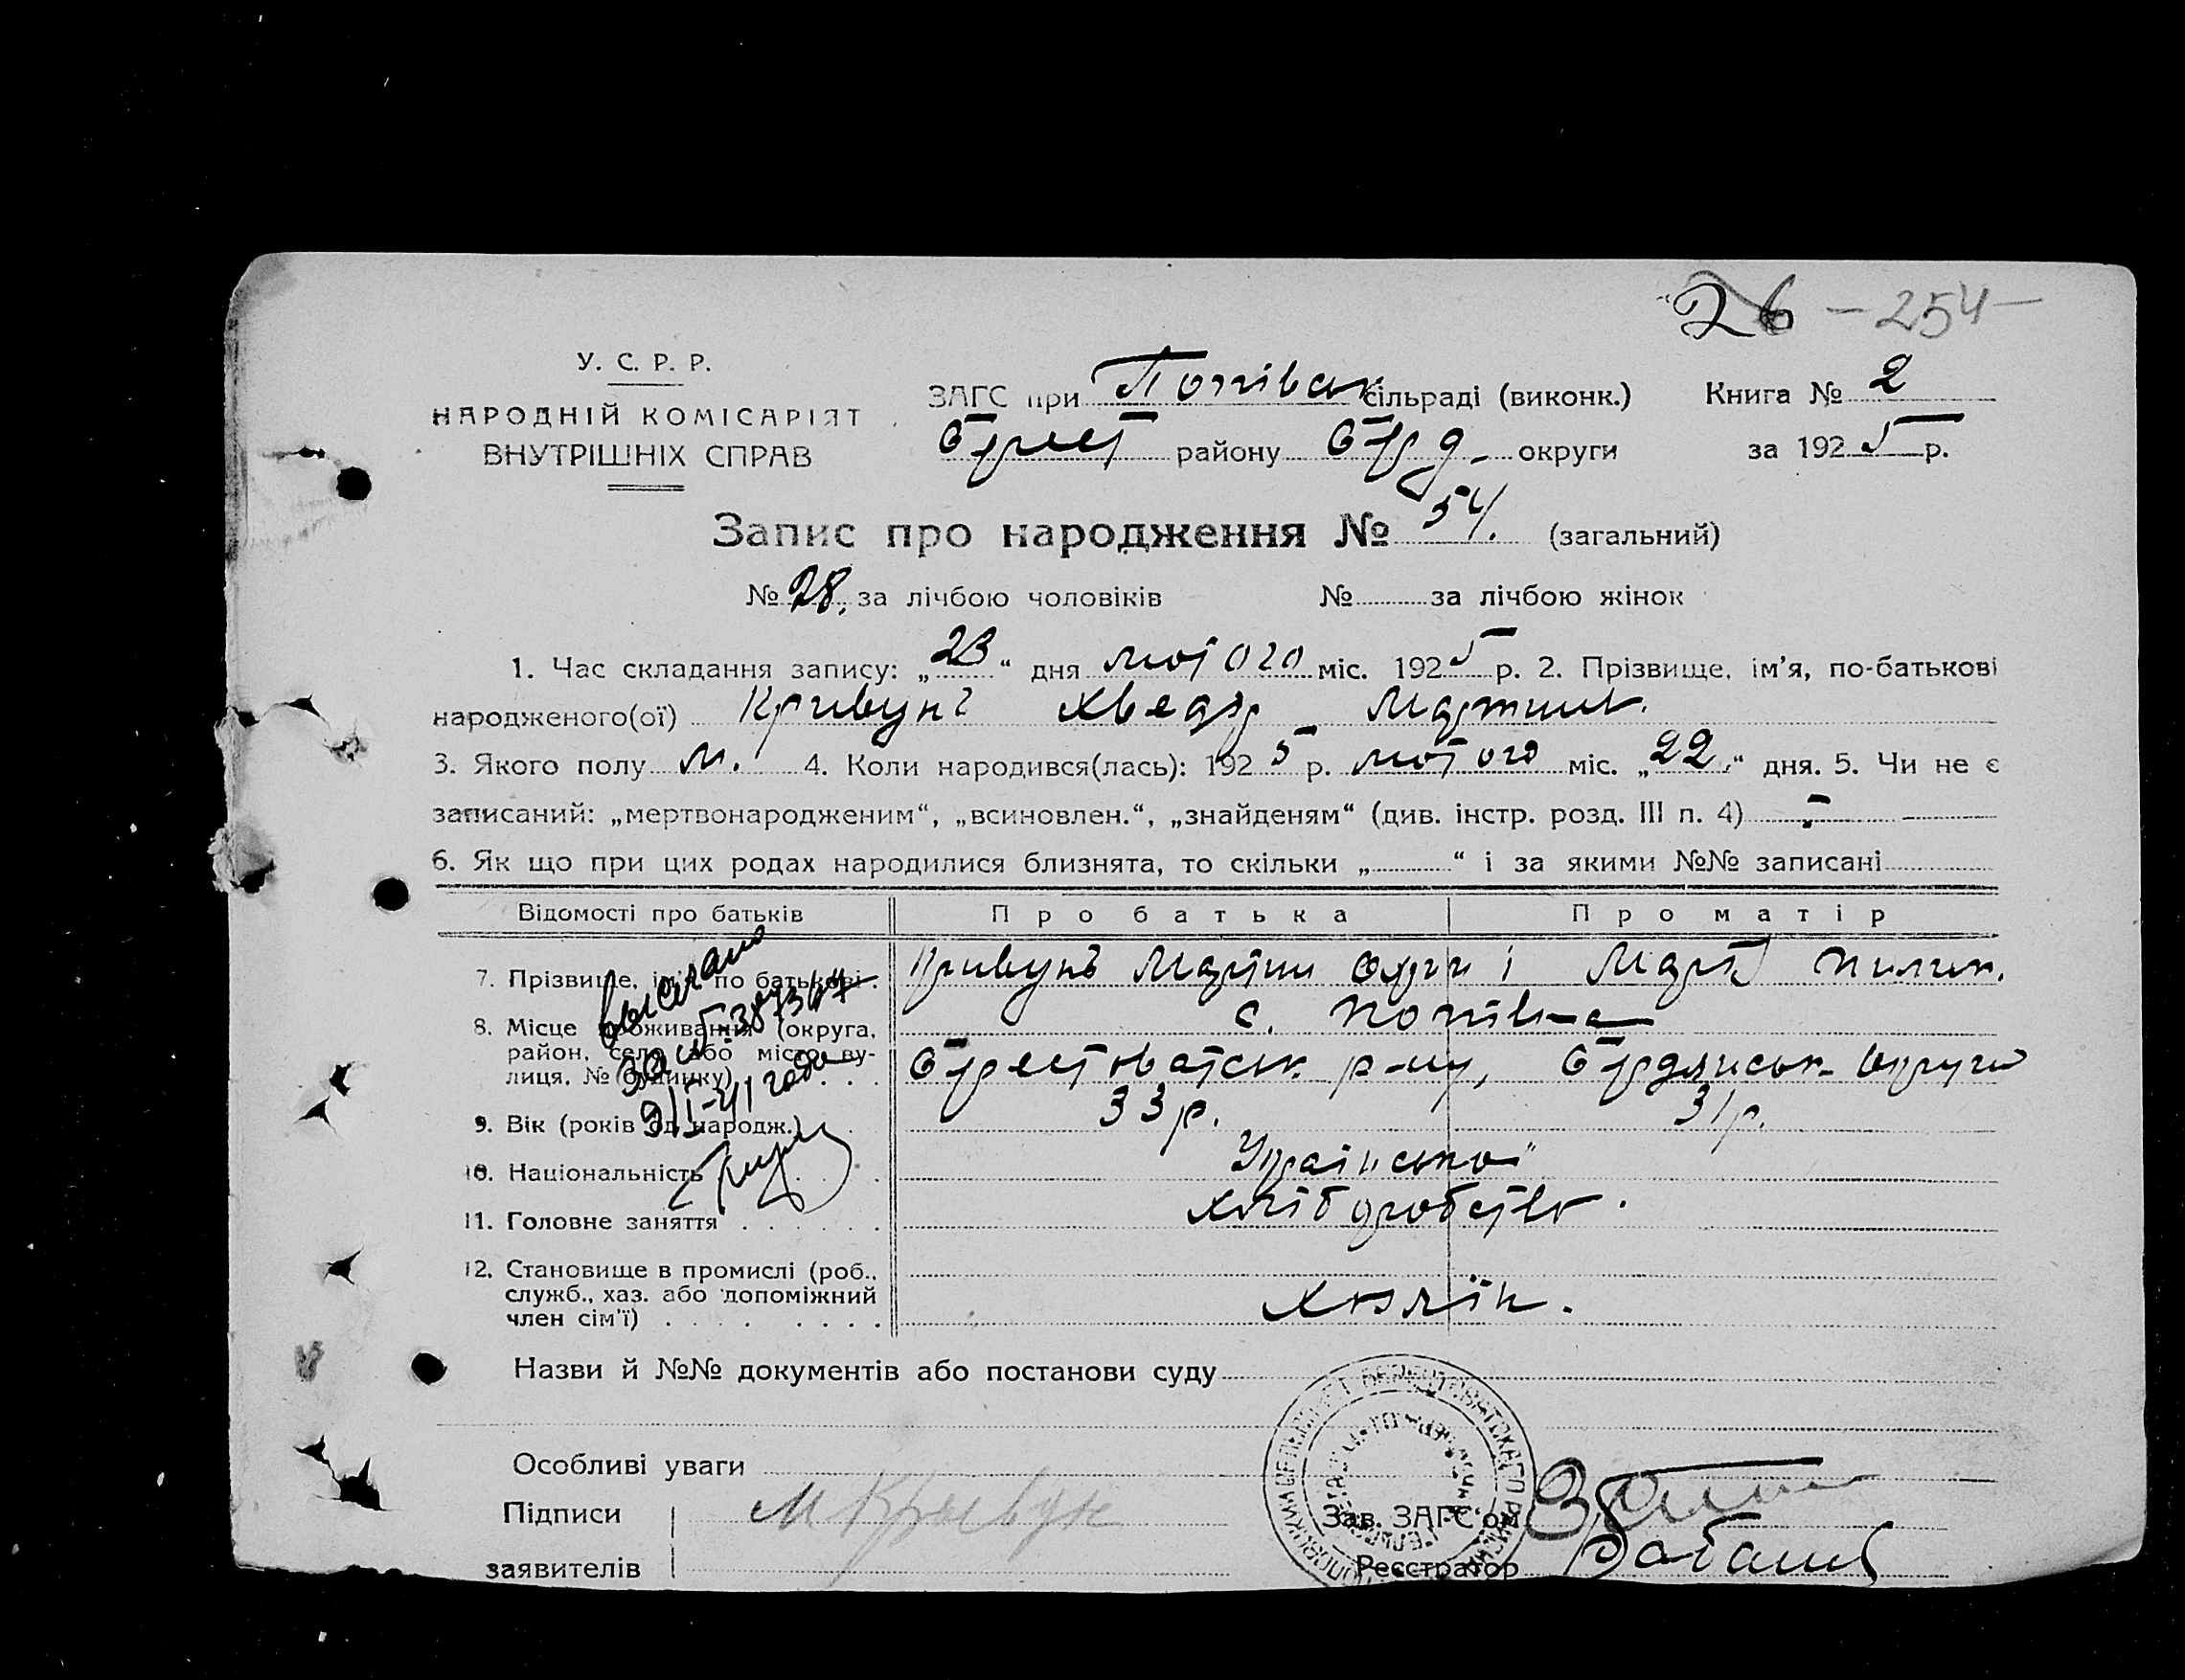 26 – 254 –
У. С. Р. Р.
НАРОДНІЙ КОМІСАРІЯТ
ВНУТРІШНІХ СПРАВ
ЗАГС при Попівск сільраді (виконк.) Книга № 2
району округи за 1925 р.
Запис про народження № 54. (загальний)
№ 28. за лічбою чоловіків № за лічбою жінок
1. Час складання запису: „23“ дня лютого міс. 1925 р. 2. Прізвище, ім’я, по-батькові
народженого(ої) Кривунь Хведір Мартин.
3. Якого полу м. 4. Коли народився(лась): 1925 р. лютого міс. „22“ дня. 5. Чи не є
записаний: „мертвонародженим“, „всиновлен.“, „знайденям“ (див. інстр. розд. III п. 4) –
6. Як що при цих родах народилися близнята, то скільки „ “ і за якими №№ записані
Відомості про батьків Про батька Про матір
7. Прізвище, ім’я, по батькові . Кривунь Мартин і Марія Пилип.
8. Місце проживання (округа, район, село або місто, ву- лиця, № будинку) с. Попівка
Берестоватськ. р-ну, Бердянськ. округи
9. Вік (років від народж.) 33 р. 31 р.
10. Національність Української
11. Головне заняття хліборобство.
12. Становище в промислі (роб., служб., хаз. або допоміжний член сім’ї) Хозяїн.
выслано
за №
9/I-41 года
Назви й №№ документів або постанови суду
Особливі уваги
Підписи М Кривун Зав. ЗАГС’ом
заявителів Реєстратор